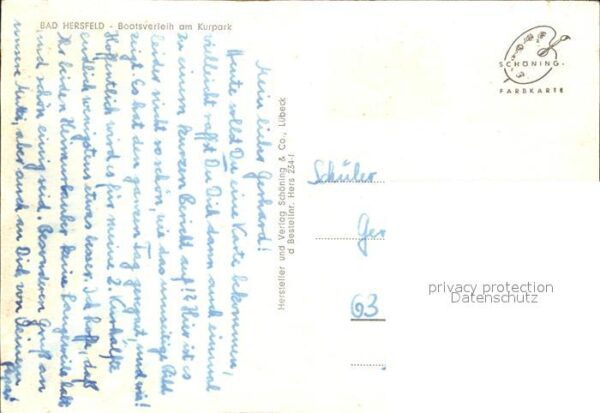 BAD HERSFELD - Bootsverleih am Kurpark
Mein lieber Gerhard!
Heute sollst Du eine Karte bekommen,
vielleicht raffst Du Dich dann auch einmal
zu einem kurzen Bericht auf!? Hier ist es
leider nicht so schön, wie das umseitige Bild
zeigt. Es hat den ganzen Tag geregnet, und wie!
Hoffentlich wird es für meine 2. Kurhälfte
endlich wenigstens etwas besser. Ich hoffe, daß
Ihr beiden keine Langeweile habt
und schön einig seid. Besonderen Gruß an
unsere Mutti, aber auch an Dich von Deinem
Papa
Hersteller und Verlag Schöning & Co., Lübeck
d Bestellnr. Hers 234-f
SCHÖNING-
FARBKARTE
Schüler
Ger
63
privacy protection
Datenschutz